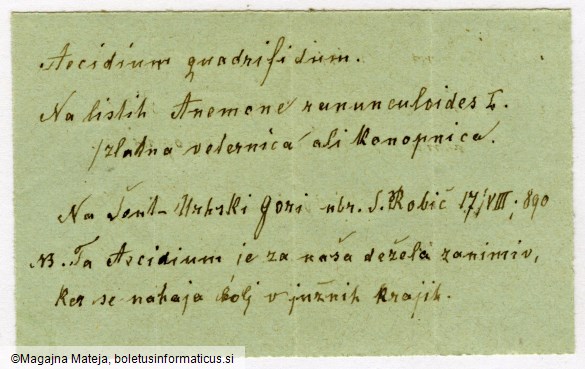 Aecidium quadrifidum.
Na listih Anemone ranunculoides L.
/zlatna veternica ali konopnica.
Na Šent-Urhski gori nbr. S. Robič 17/VIII; 890
NB. Ta Aecidium je za naša dežela zanimiv,
ker se nahaja bolj v južnih krajih.
©Magajna Mateja, boletusinformaticus.si